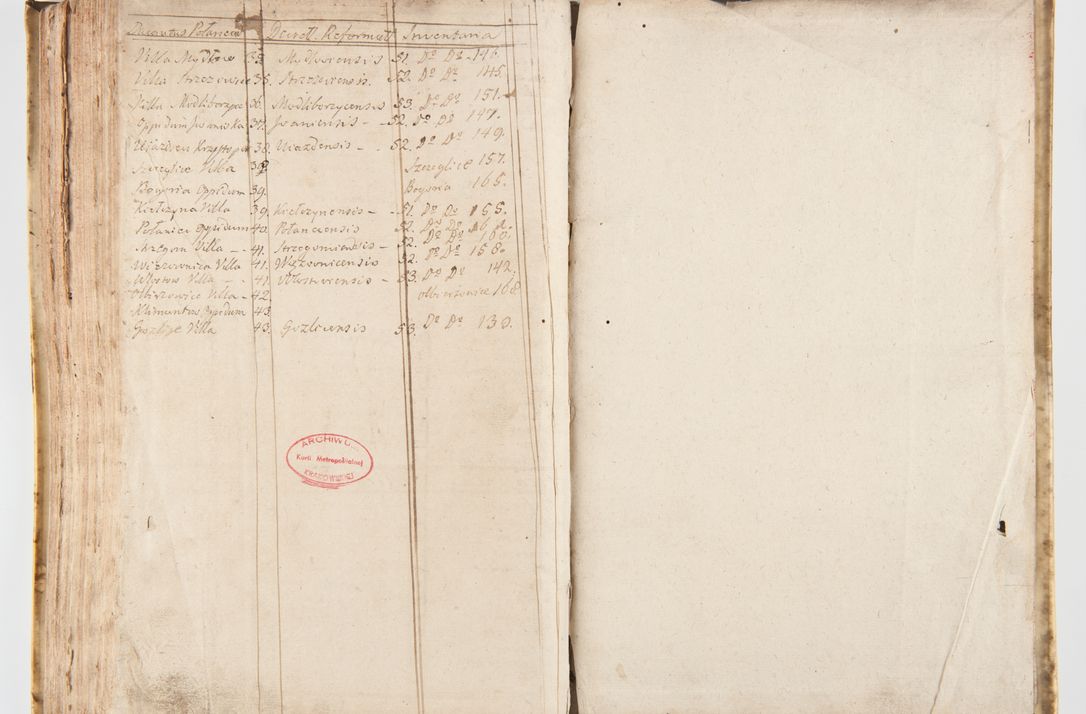 Decanatus Połanecen Decret. Reformat Inventaria
Villa Mydłow 35. Mydłoviensis 51. Do Do 146
Villa Strzyzowice 35. 52. Do Do 145
Villa Modliborzyce 36. Modliborzycensis 53. Do Do 151.
Oppidum Iwaniska 37. Iwaniensis - - 52. Do Do 147.
Uiazdow 38. Uiazdensis - . 52. Do Do 149.
Szczeglice Villa 39. Szczeglice 157.
Bogoria Oppidum 39. Bogoria 165.
Kiełczyna Villa 39. Kiełczynensis - - 51. Do Do 155.
Połaniec Oppidum 40. Połanecensis 52. Do Do
Strzegom Villa - - 41. Strzegomiensis - 52. Do Do 160.
Wiązownica Villa 41. Wiązownicensis 52. Do Do 158.
Villa - - 41. - 53. Do Do 142.
Olbierzowice Villa - 42. Olbierzowice 168
Klimuntow Oppidum 43.
Gozlice Villa 43. Gozlicensis 53. Do Do 130.
ARCHIWUM
Kurii Metropolitalnej
KRAKOWSKIEJ